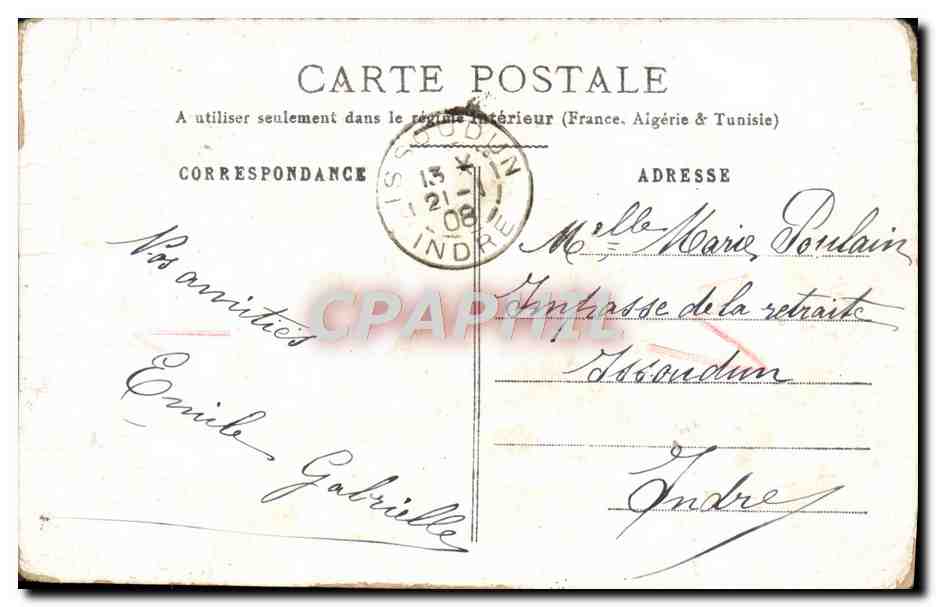 CARTE POSTALE
A utiliser seulement dans le régime intérieur (France, Algérie & Tunisie)
CORRESPONDANCE
ISSOUDUN
13
21-1
08
INDRE
Nos amitiés
Emile Gabrielle
ADRESSE
Melle Marie Poulain
Impasse de la retraite
Issoudun
Indre
CPAPHIL